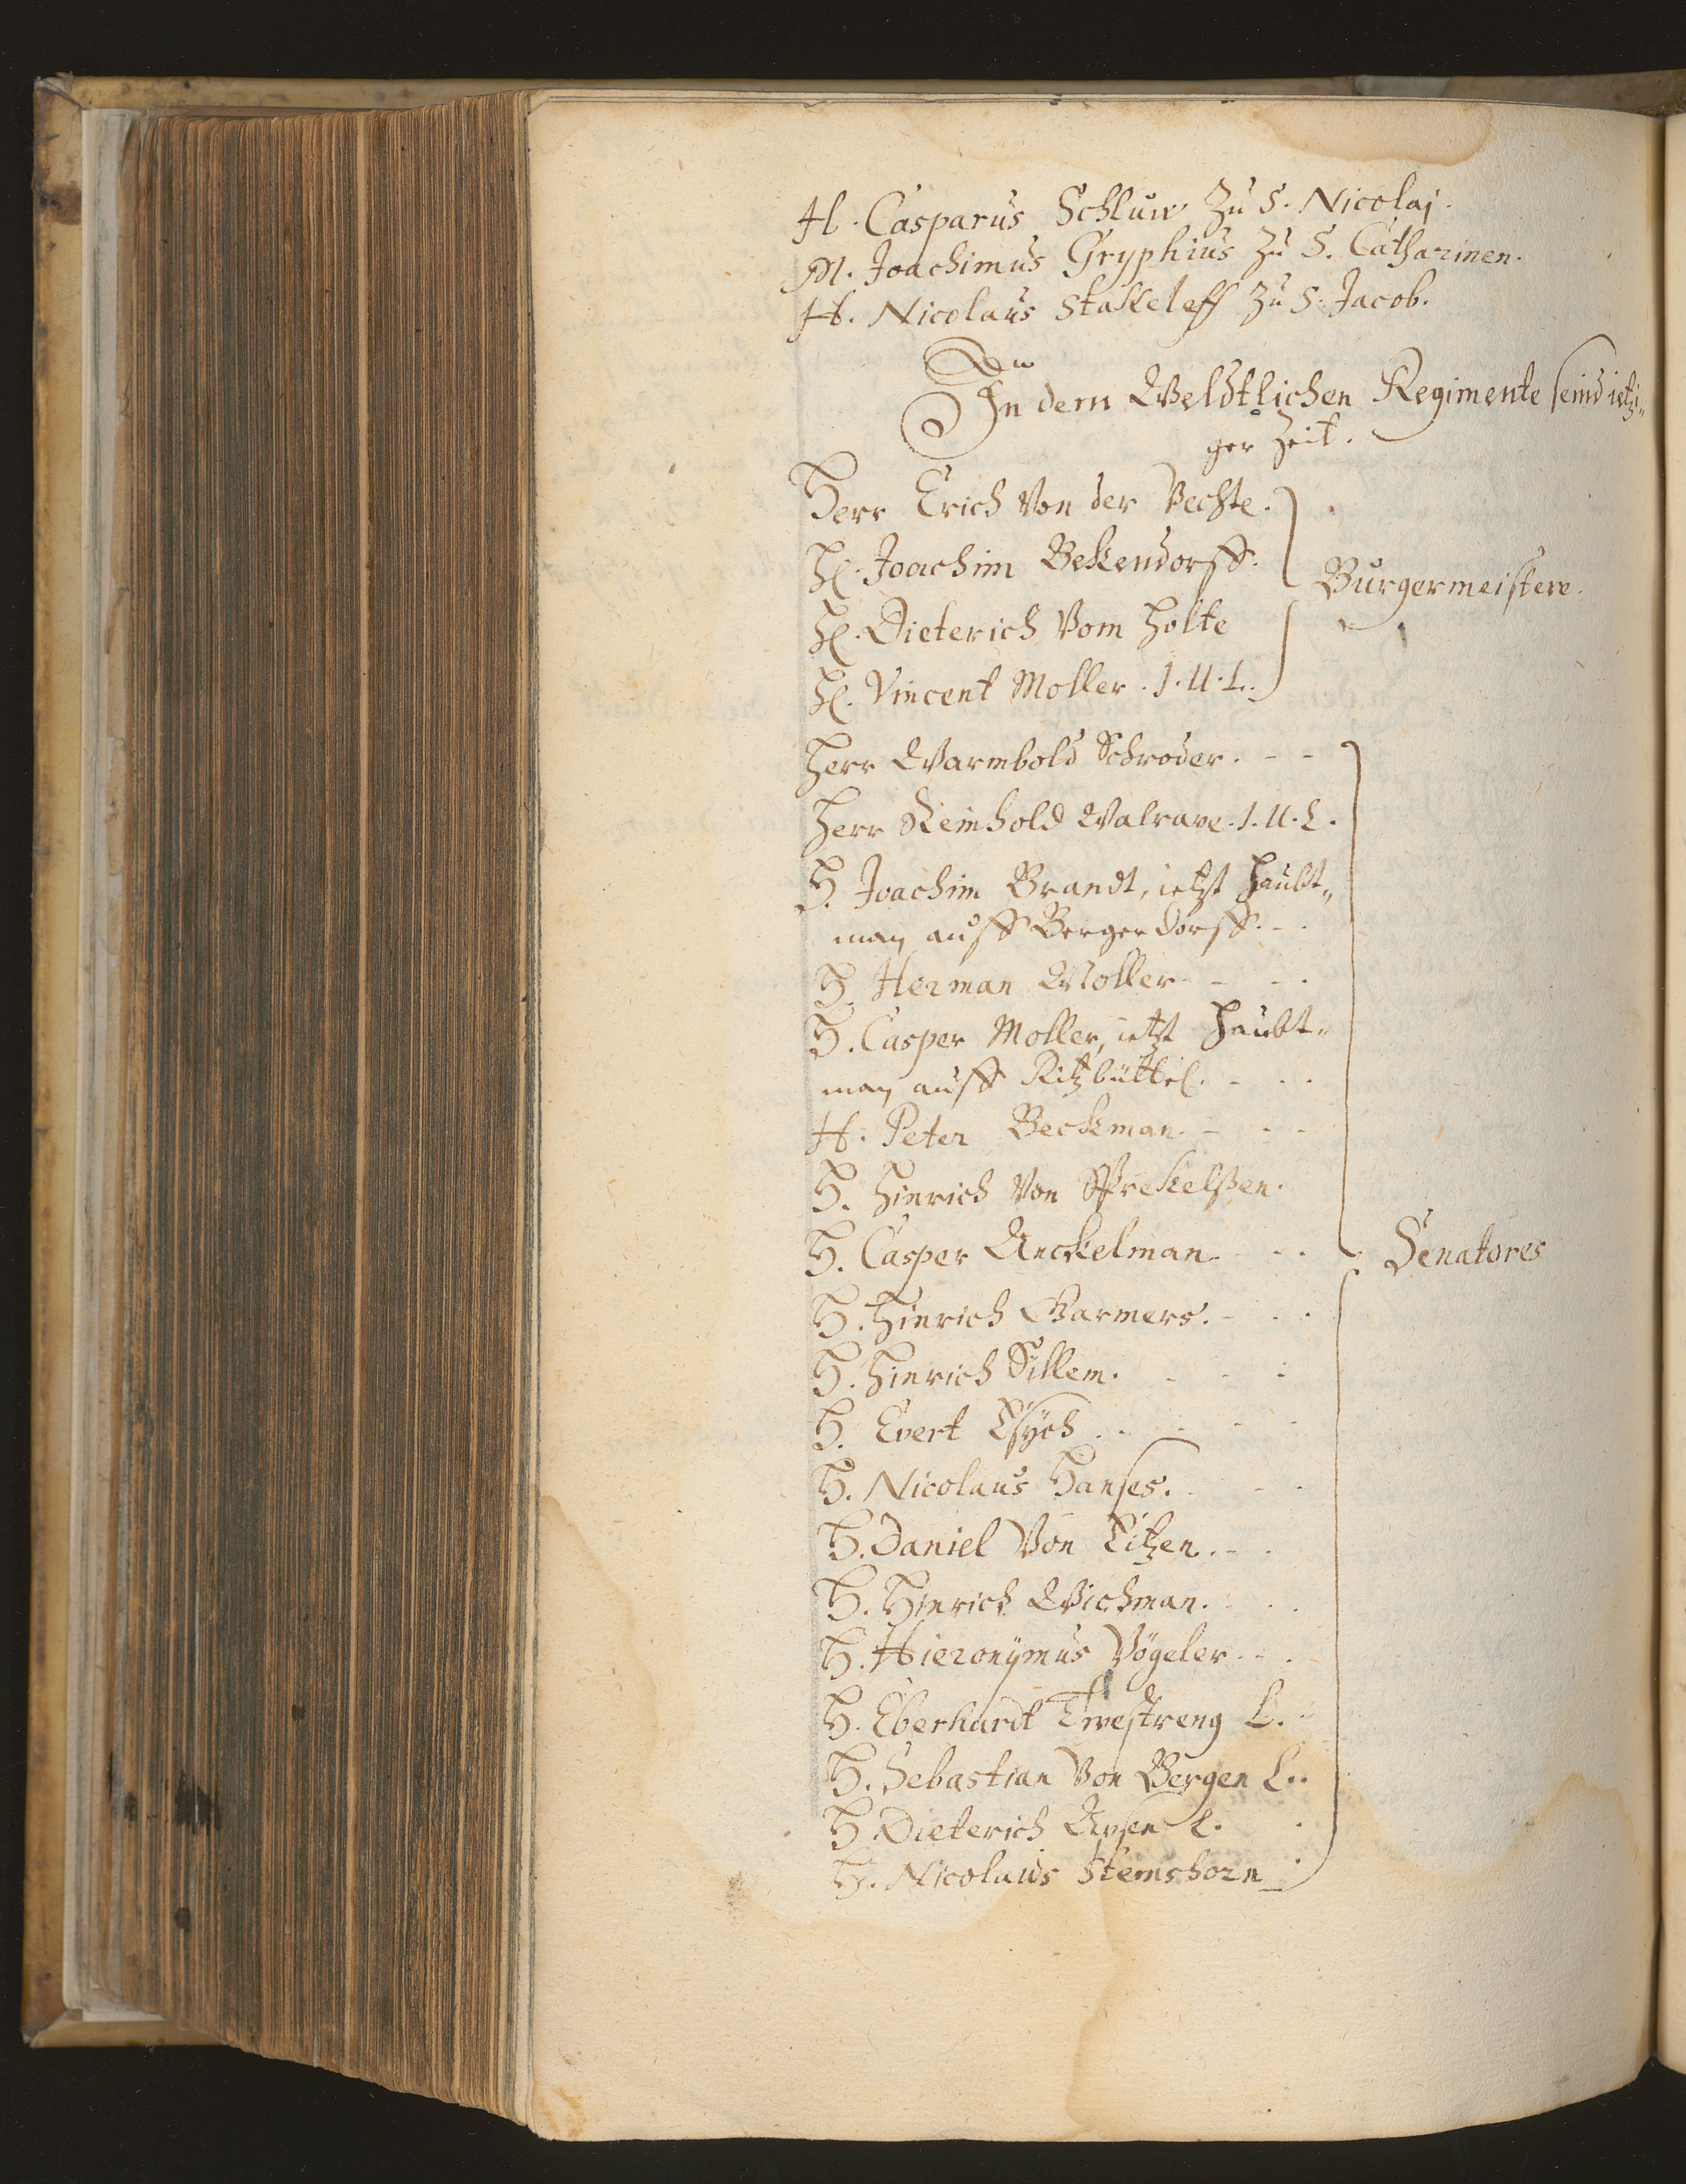 H. Casparus Schluw zu S. Nicolaj.
M. Joachimus Gryphius zu S. Catharinen.
H. Nicolaus Stakeleff zu S. Jacob.
In dem Weldtlichen Regimente seind ietzi„
ger Zeit.
Herr Erich Von der Vechte.
H. Joachim Bekendorff.
Burgermeistere.
H. Dieterich Vom Holte
H. Vincent Moller. J. U. L.
Herr Warmbold Schroder.
Herr Reinhold Walrave. J. U. L.
H. Joachim Brandt, ietzt Haubt„
man auff Bergerdorff.
H. Herman Moller
H. Casper Moller, ietzt Haubt„
man auff Ritzbüttel.
H. Peter Beckman
H. Hinrich Von Sprekelßen.
H. Casper Anckelman.
Senatores
H. Hinrich Garmers.
H. Hinrich Sillem.
H. Evert Esych
H. Nicolaus Hanses.
H. Daniel Von Eitzen.
H. Hinrich Wichman.
H. Hieronÿmus Vögeler
H. Eberhardt Twestreng L.
H. Sebastian Von Bergen L.
H. Dieterich L.
H. Nicolaus Stemshorn